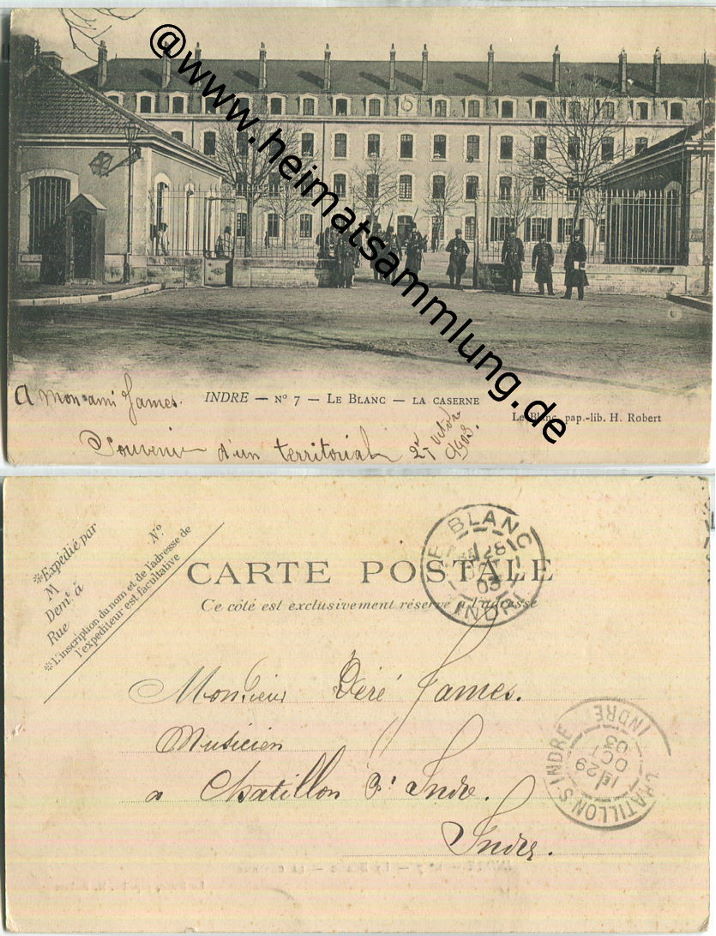 @www.heimatsammlung.de
INDRE — N° 7 — LE BLANC — LA CASERNE
Le Blanc, pap.-lib. H. Robert
A mon ami James.
Souvenir d'un territorial
Octobre 1903.
*Expédié par
M N°
Demt à
Rue
*L'inscription du nom et de l'adresse de
l'expéditeur est facultative
CARTE POSTALE
Ce côté est exclusivement réservé à l'adresse
LE BLANC
28
03
INDRE
Monsieur Déré James.
Musicien
a Chatillon s: Indre.
Indre.
CHATILLON-S-INDRE
1E 29
OCT
03
INDRE